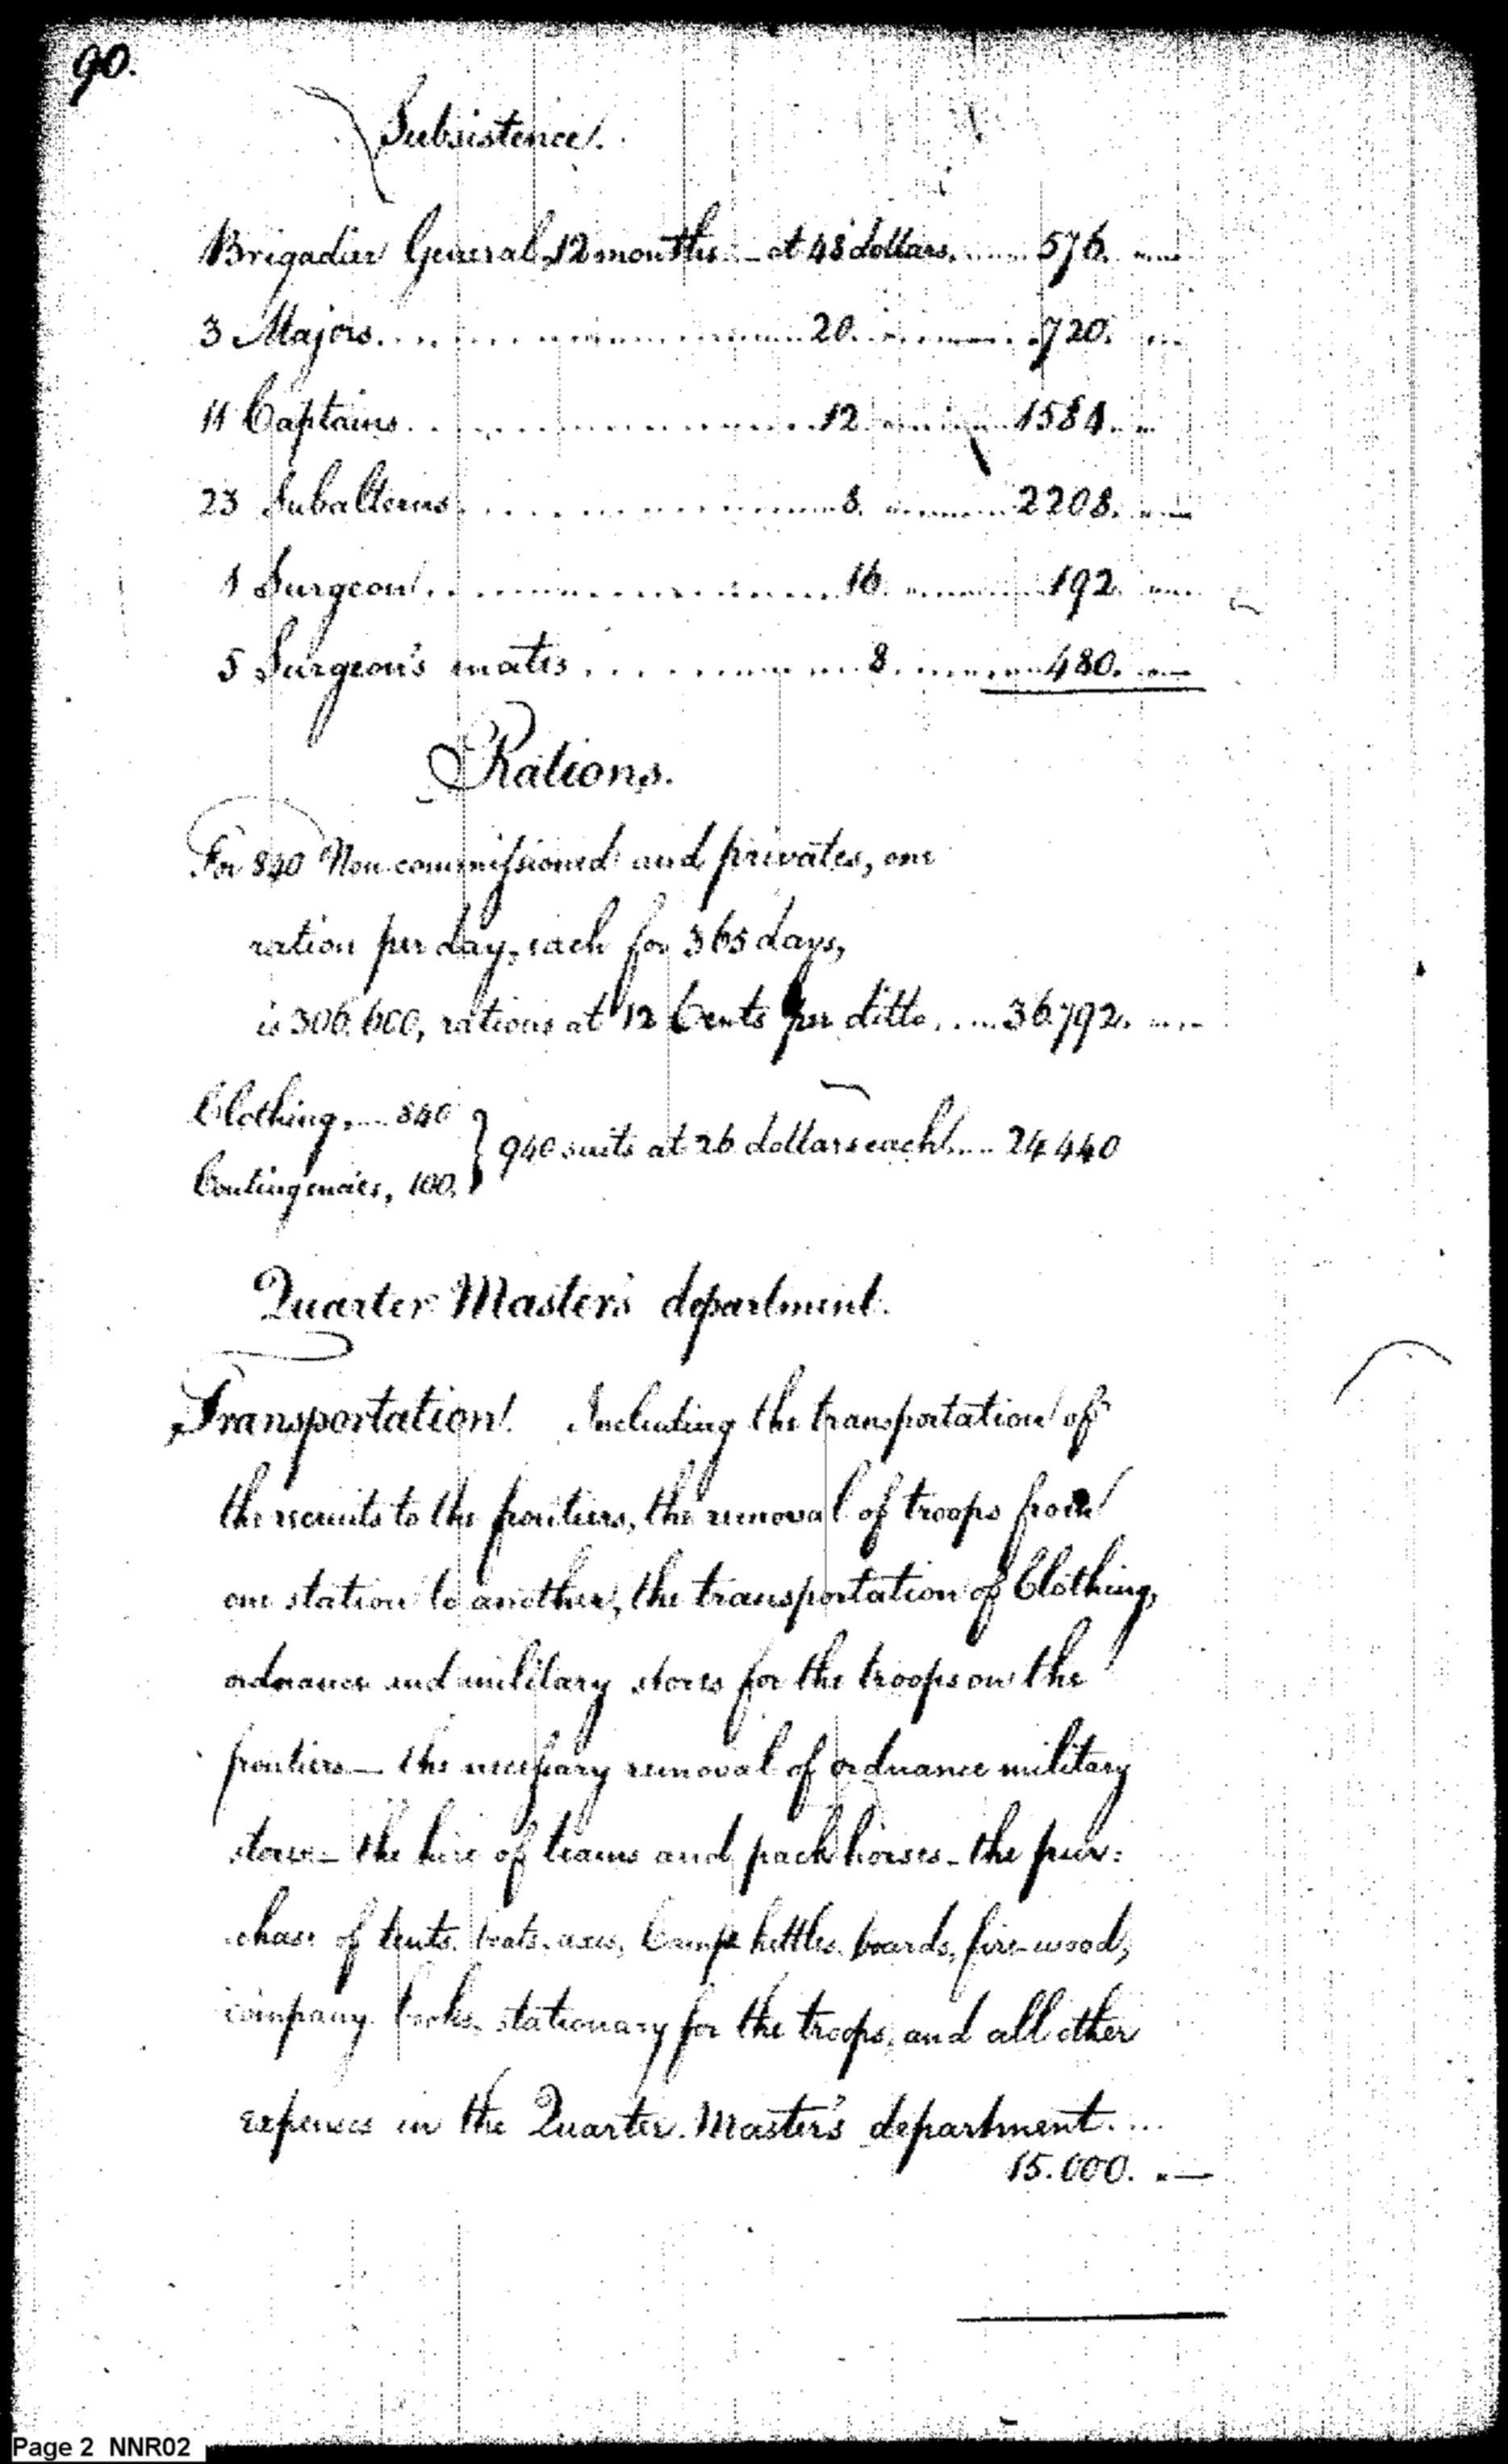 90.
Subsistence.
Brigadier General, 12 months - at 48 dollars, ...... 576. ....
3 Majors ........................ 20. ........ 720. ...
11 Captains ........................ 12. ........ 1584. ...
23 Subalterns ........................ 8. ........ 2208. ....
1 Surgeon ........................ 16. ........ 192. ....
5 Surgeon's mates ................ 8. ........ 480. ....
Rations.
For 840 Non commissioned and privates, one
ration per day, each for 365 days,
is 306.600, rations at 12 Cents per ditto, ..... 36.792. ....
Clothing, .... 840
} 940 suits at 26 dollars each .... 24440
Contingencies, 100.
Quarter Master's department.
Transportation. Including the transportation of
the recruits to the frontiers, the removal of troops from
one station to another, the transportation of Clothing,
ordnance and military stores for the troops on the
frontiers — the necessary removal of ordnance military
stores — the hire of teams and pack horses — the pur:
chase of tents, boats, axes, Camp kettles, boards, fire-wood,
company books, stationary for the troops, and all other
expences in the Quarter Master's department. ...
15.000. . —
Page 2 NNR02